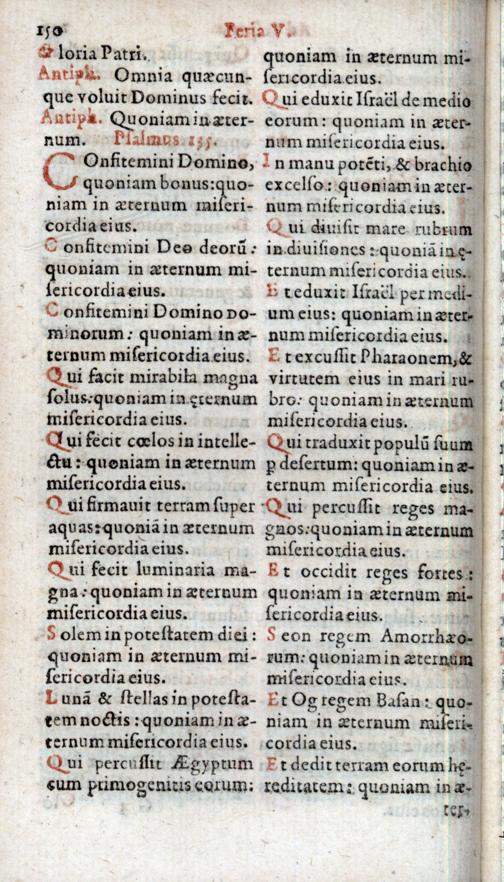 150 Feria V.
Gloria Patri.
Antiph. Omnia quæcun-
que voluit Dominus fecit.
Antiph. Quoniam in æter-
num. Psalmus 135.
COnfitemini Domino,
quoniam bonus: quo-
niam in æternum miseri-
cordia eius.
Confitemini Deo deorũ:
quoniam in æternum mi-
sericordia eius.
Confitemini Domino Do-
minorum: quoniam in æ-
ternum misericordia eius.
Qui facit mirabila magna
solus: quoniam in ęternum
misericordia eius.
Qui fecit cœlos in intelle-
ctu: quoniam in æternum
misericordia eius.
Qui firmauit terram super
aquas: quoniã in æternum
misericordia eius.
Qui fecit luminaria ma-
gna: quoniam in æternum
misericordia eius.
Solem in potestatem diei:
quoniam in æternum mi-
sericordia eius.
Lunã & stellas in potesta-
tem noctis: quoniam in æ-
ternum misericordia eius.
Qui percussit Ægyptum
cum primogenitis eorum:
quoniam in æternum mi-
sericordia eius.
Qui eduxit Israël de medio
eorum: quoniam in æter-
num misericordia eius.
In manu potẽti, & brachio
excelso: quoniam in æter-
num misericordia eius.
Qui diuisit mare rubrum
in diuisiones: quoniã in ę-
ternum misericordia eius.
Et eduxit Israël per medi-
um eius: quoniam in æter-
num misericordia eius.
Et excussit Pharaonem, &
virtutem eius in mari ru-
bro: quoniam in æternum
misericordia eius.
Qui traduxit populũ suum
ꝑ desertum: quoniam in æ-
ternum misericordia eius.
Qui percussit reges ma-
gnos: quoniam in æternum
misericordia eius.
Et occidit reges fortes:
quoniam in æternum mi-
sericordia eius.
Seon regem Amorrhæo-
rum: quoniam in æternum
misericordia eius.
Et Og regem Basan: quo-
niam in æternum miseri-
cordia eius.
Et dedit terram eorum hę-
reditatem: quoniam in æ-
ter-